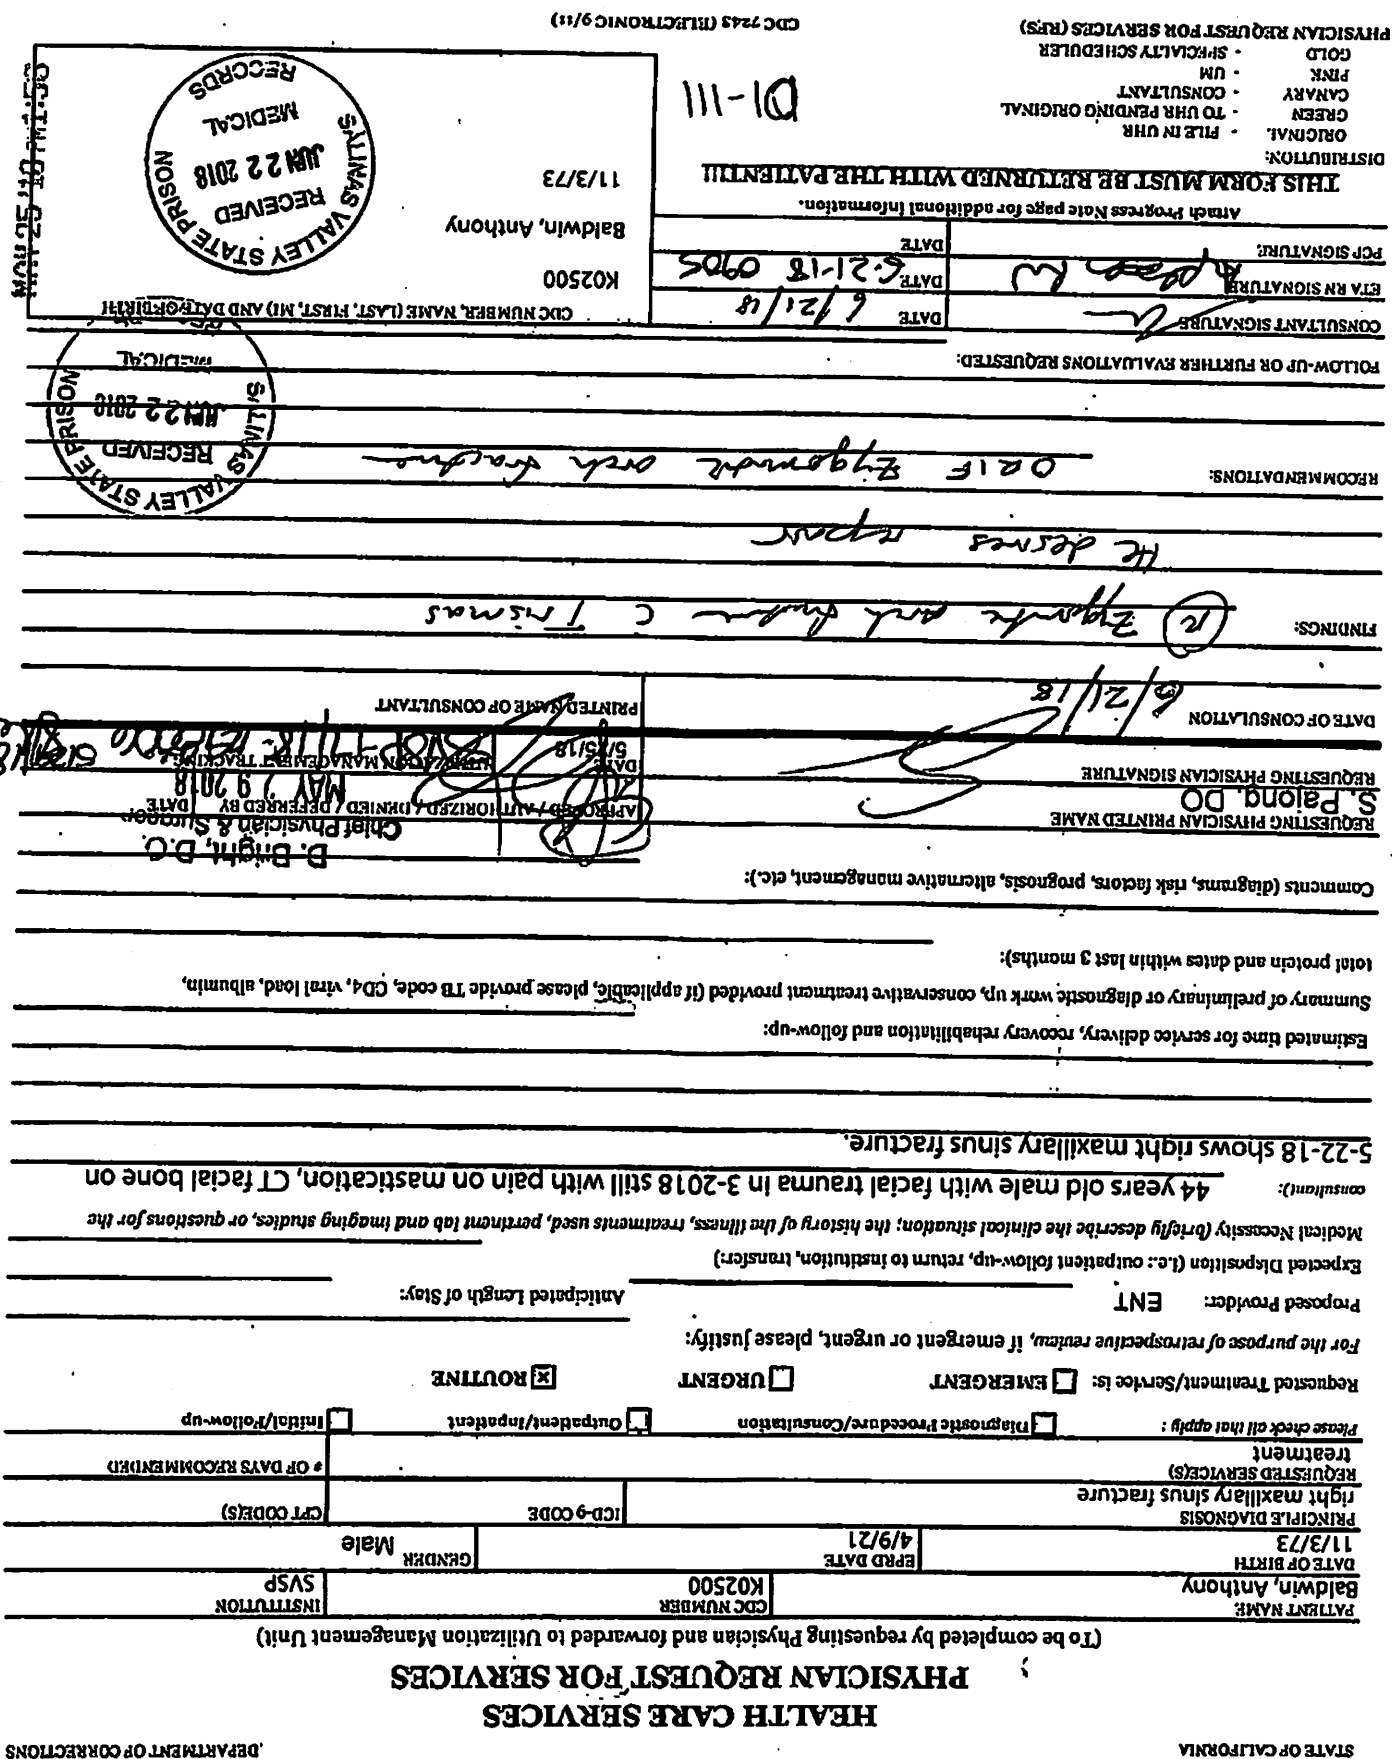 STATE OF CALIFORNIA DEPARTMENT OF CORRECTIONS
HEALTH CARE SERVICES
PHYSICIAN REQUEST FOR SERVICES
(To be completed by requesting Physician and forwarded to Utilization Management Unit)
PATIENT NAME CDC NUMBER INSTITUTION
Baldwin, Anthony K02500 SVSP
DATE OF BIRTH EPRD DATE GENDER Male
11/3/73 4/9/21
PRINCIPLE DIAGNOSIS ICD-9 CODE CPT CODE(S)
right maxillary sinus fracture
REQUESTED SERVICE(S) # OF DAYS RECOMMENDED
treatment
Please check all that apply : Diagnostic Procedure/Consultation Outpatient/Inpatient Initial/Follow-up
Requested Treatment/Service is: EMERGENT URGENT ROUTINE
For the purpose of retrospective review, if emergent or urgent, please justify:
Proposed Provider: ENT Anticipated Length of Stay:
Expected Disposition (i.e.: outpatient follow-up, return to institution, transfer:)
Medical Necessity (briefly describe the clinical situation; the history of the illness, treatments used, pertinent lab and imaging studies, or questions for the
consultant): 44 years old male with facial trauma in 3-2018 still with pain on mastication, CT facial bone on
5-22-18 shows right maxillary sinus fracture.
Estimated time for service delivery, recovery rehabilitation and follow-up:
Summary of preliminary or diagnostic work up, conservative treatment provided (if applicable, please provide TB code, CD4, viral load, albumin,
total protein and dates within last 3 months):
Comments (diagrams, risk factors, prognosis, alternative management, etc.):
D. Bright, D.O.
Chief Physician & Surgeon
REQUESTING PHYSICIAN PRINTED NAME APPROVED / AUTHORIZED / DENIED / DEFERRED BY DATE
S. Pajong, DO MAY 29 2018
REQUESTING PHYSICIAN SIGNATURE DATE UTILIZATION MANAGEMENT TRACKING
5/25/18
DATE OF CONSULTATION PRINTED NAME OF CONSULTANT
6/21/18
FINDINGS: R Zygomatic arch fracture c Trismas
He desires repair
RECOMMENDATIONS: ORIF zygomatic arch fracture
SALINAS VALLEY STATE PRISON
RECEIVED
JUN 22 2018
MEDICAL
FOLLOW-UP OR FURTHER EVALUATIONS REQUESTED:
CONSULTANT SIGNATURE DATE 6/21/18 CDC NUMBER, NAME (LAST, FIRST, MI) AND DATE OF BIRTH
ETA RN SIGNATURE DATE 6-21-18 0905 K02500
PCP SIGNATURE DATE Baldwin, Anthony
Attach Progress Note page for additional information.
THIS FORM MUST BE RETURNED WITH THE PATIENT!!!
11/3/73
SALINAS VALLEY STATE PRISON
RECEIVED
JUN 22 2018
MEDICAL
RECORDS
DISTRIBUTION:
ORIGINAL - FILE IN UHR
GREEN - TO UHR PENDING ORIGINAL
CANARY - CONSULTANT
PINK - UM
GOLD - SPECIALTY SCHEDULER
D1-111
PHYSICIAN REQUEST FOR SERVICES (RFS) CDC 7243 (ELECTRONIC 9/11)